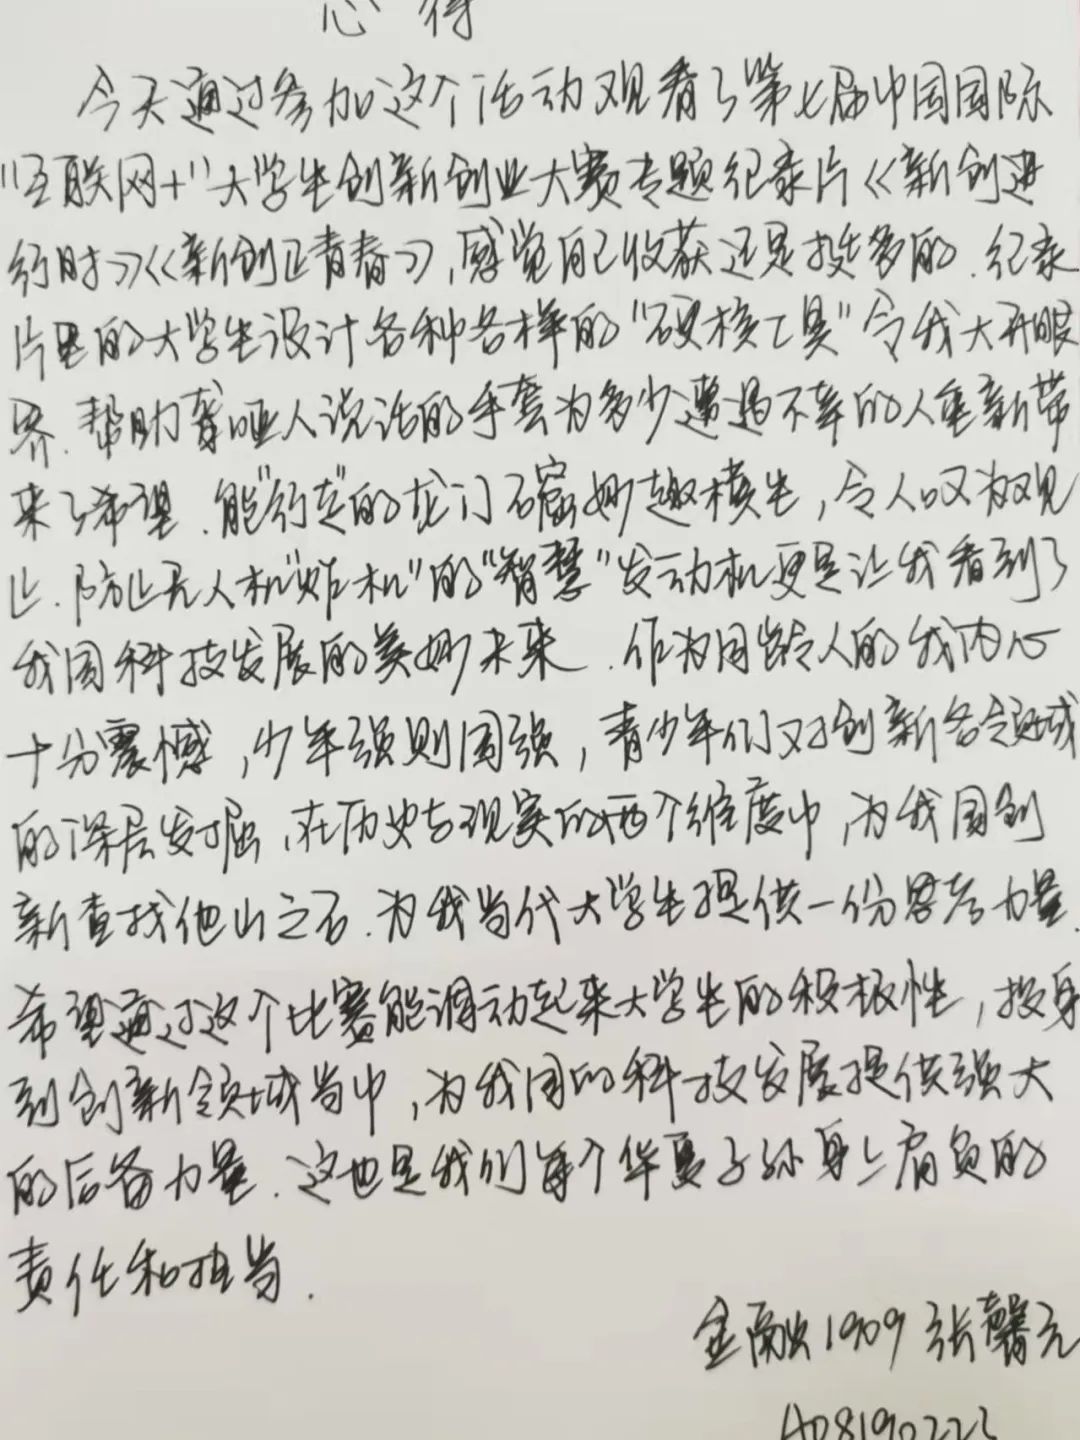 心得
今天通过参加这个活动观看了第七届中国国际
"互联网+"大学生创新创业大赛专题纪录片《新创进
行时》《新创正青春》,感觉自己收获还是挺多的.纪录
片里的大学生设计各种各样的"硬核工具"令我大开眼
界.帮助聋哑人说话的手套为多少遭遇不幸的人重新带
来了希望.能"行走"的龙门石窟妙趣横生,令人叹为观
止.防止无人机"炸机"的"智慧"发动机更是让我看到了
我国科技发展的美妙未来.作为同龄人的我内心
十分震憾,少年强则国强,青少年们对创新各领域
的深层发掘,在历史与现实的两个维度中,为我国创
新查找他山之石.为我当代大学生提供一份思考力量.
希望通过这个比赛能调动起来大学生的积极性,投身
到创新领域当中,为我国的科技发展提供强大
的后备力量.这也是我们每个华夏子孙身上肩负的
责任和担当.
金融1909 张馨元